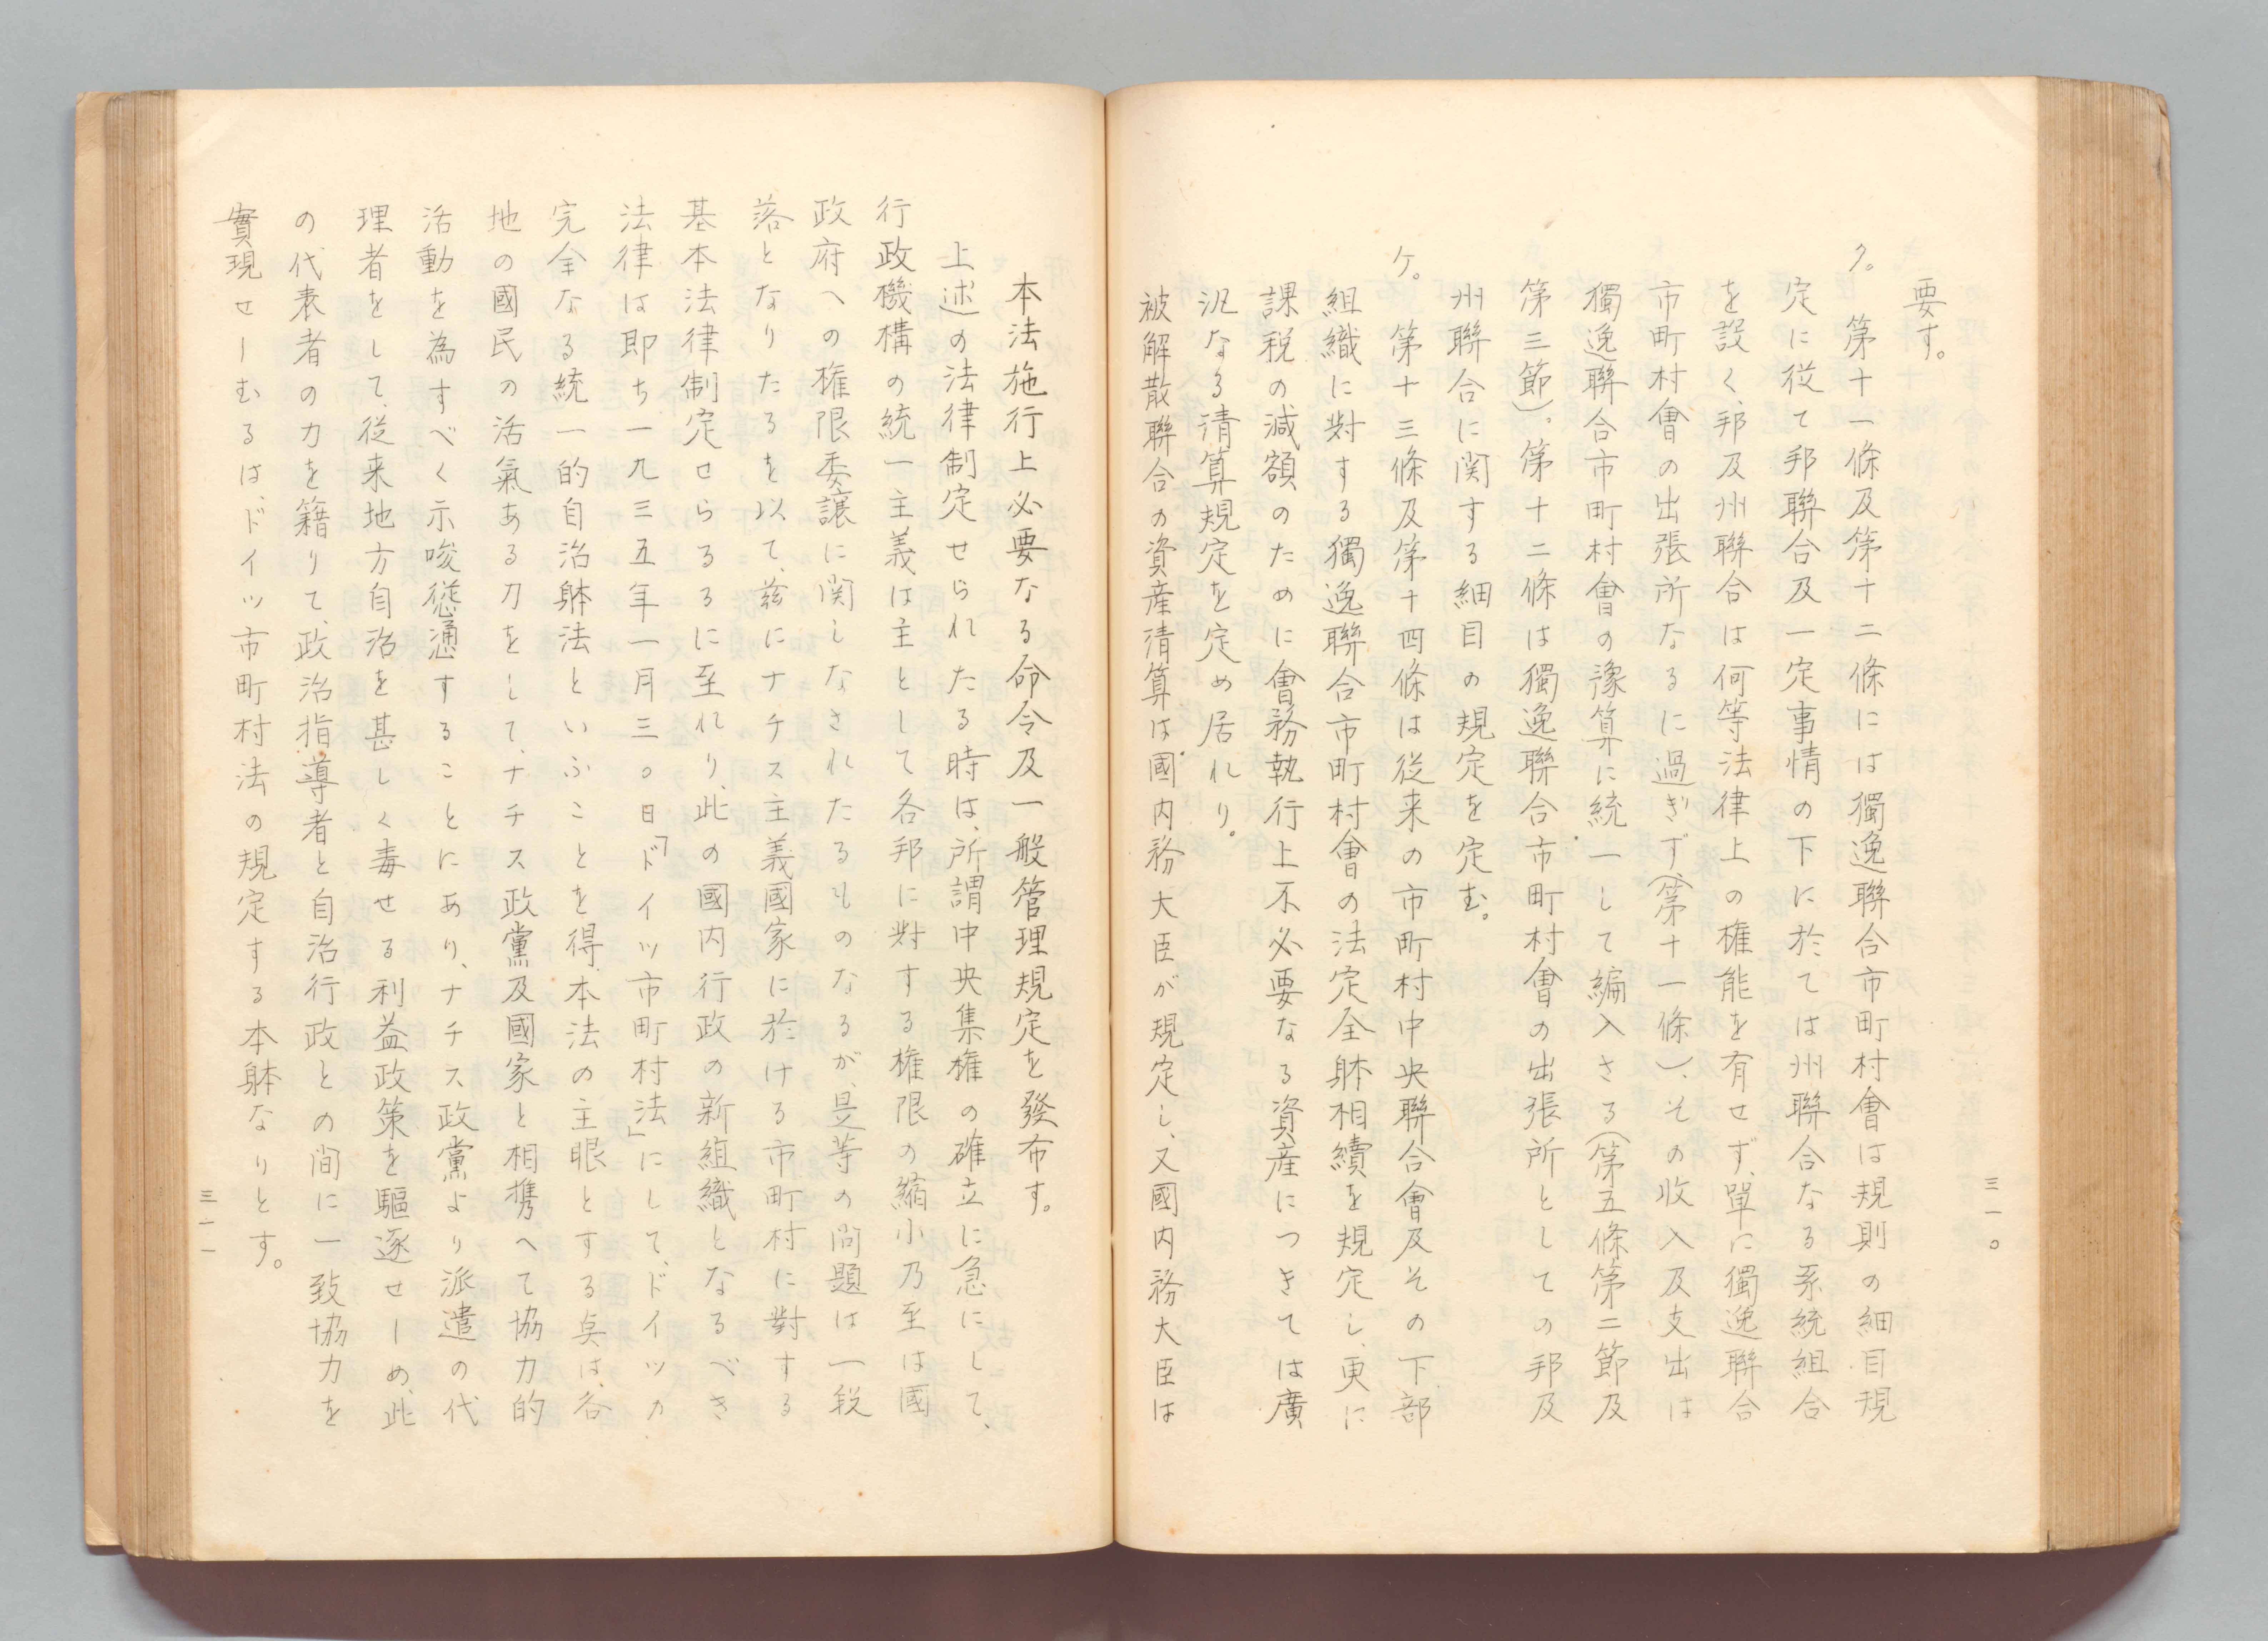 要す。
ク。第十一條及第十二條には獨逸聯合市町村會は規則の細目規
定に從て邦聯合及一定事情の下に於ては州聯合なる系統組合
を設く、邦及州聯合は何等法律上の權能を有せず、單に獨逸聯合
市町村會の出張所なるに過ぎず(第十一條)、その收入及支出は
獨逸聯合市町村會の豫算に統一して編入さる(第五條第二節及
第三節)。第十二條は獨逸聯合市町村會の出張所としての邦及
州聯合に関する細目の規定を定む。
ケ。第十三條及第十四條は從来の市町村中央聯合會及その下部
組織に對する獨逸聯合市町村會の法定全躰相續を規定し、更に
課税の減額のために會務執行上不必要なる資産につきては廣
汎なる清算規定を定め居れり。
被解散聯合の資産清算は國内務大臣が規定し、又國内務大臣は
三一〇
本法施行上必要なる命令及一般管理規定を發布す。
上述の法律制定せられたる時は、所謂中央集權の確立に急にして、
行政機構の統一主義は主として各邦に對する權限の縮小乃至は國
政府への權限委讓に関しなされたるものなるが、是等の問題は一段
落となりたるを以て、茲にナチス主義國家に於ける市町村に對する
基本法律制定せらるるに至れり、此の國内行政の新組織となるべき
法律は即ち一九三五年一月三〇日「ドイツ市町村法」にして、ドイツカ
完全なる統一的自治躰法といふことを得、本法の主眼とする矣は、各
地の國民の活氣ある力をして、ナチス政黨及國家と相携へて協力的
活動を為すべく示唆慫慂することにあり、ナチス政黨より派遣の代
理者をして、從来地方自治を甚しく毒せる利益政策を驅逐せしめ、此
の代表者の力を籍りて、政治指導者と自治行政との間に一致協力を
實現せしむるは、ドイツ市町村法の規定する本躰なりとす。
三一一